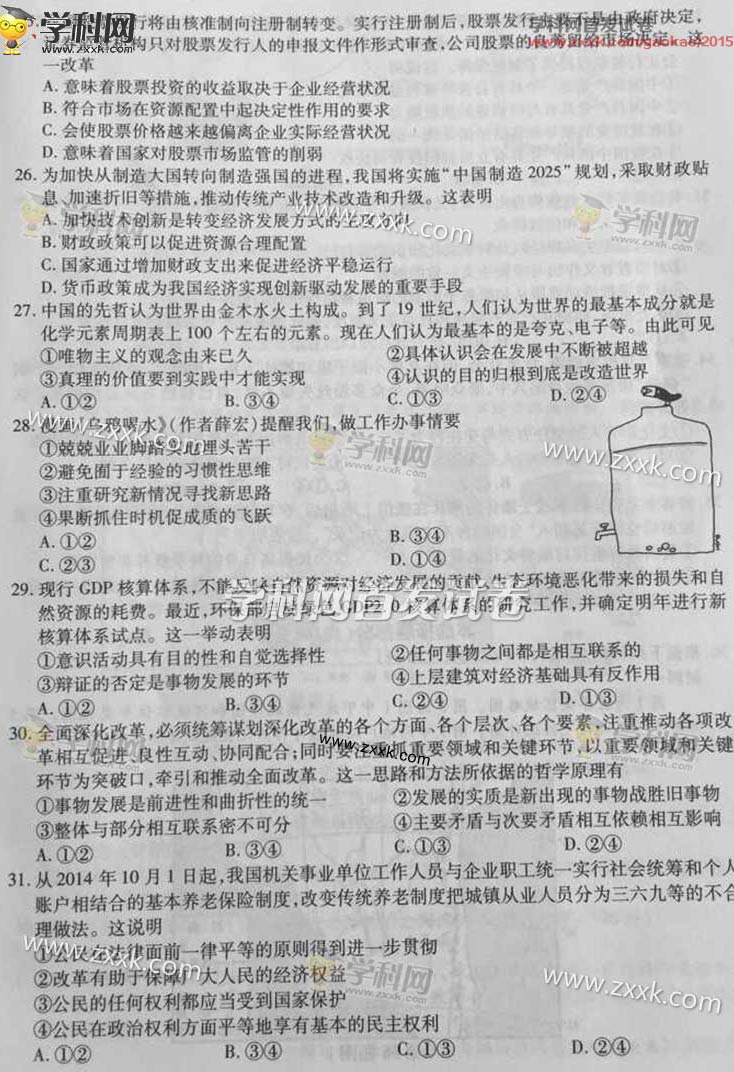 行将由核准制向注册制转变。实行注册制后,股票发行
构只对股票发行人的申报文件作形式审查,公司股票的
一改革
A. 意味着股票投资的收益取决于企业经营状况
B. 符合市场在资源配置中起决定性作用的要求
C. 会使股票价格越来越偏离企业实际经营状况
D. 意味着国家对股票市场监管的削弱
26. 为加快从制造大国转向制造强国的进程,我国将实施“中国制造 2025”规划,采取财政贴
息、加速折旧等措施,推动传统产业技术改造和升级。这表明
A. 加快技术创新是转变经济发展方式的
B. 财政政策可以促进资源合理配置
C. 国家通过增加财政支出来促进经济平稳运行
D. 货币政策成为我国经济实现创新驱动发展的重要手段
27. 中国的先哲认为世界由金木水火土构成。到了 19 世纪,人们认为世界的最基本成分就是
化学元素周期表上 100 个左右的元素。现在人们认为最基本的是夸克、电子等。由此可见
①唯物主义的观念由来已久 ②具体认识会在发展中不断被超越
③真理的价值要到实践中才能实现 ④认识的目的归根到底是改造世界
A. ①② B. ③④ C. ①③ D. ②④
28. 漫画《乌鸦喝水》(作者薛宏)提醒我们,做工作办事情要
①兢兢业业脚踏实地埋头苦干
②避免囿于经验的习惯性思维
③注重研究新情况寻找新思路
④果断抓住时机促成质的飞跃
A. ①② B. ③④
C. ②③ D. ①④
29. 现行 GDP 核算体系,不能反映自然资源对经济发展的贡献、生态环境恶化带来的损失和自
然资源的耗费。最近,环保部 GDP2.0 核算体系的研究工作,并确定明年进行新
核算体系试点。这一举动表明
①意识活动具有目的性和自觉选择性 ②任何事物之间都是相互联系的
③辩证的否定是事物发展的环节 ④上层建筑对经济基础具有反作用
A. ①② B. ③④ C. ②④ D. ①③
30. 全面深化改革,必须统筹谋划深化改革的各个方面、各个层次、各个要素,注重推动各项改
革相互促进、良性互动、协同配合;同时要 抓重要领域和关键环节,以重要领域和关键
环节为突破口,牵引和推动全面改革。这一思路和方法所依据的哲学原理有
①事物发展是前进性和曲折性的统一 ②发展的实质是新出现的事物战胜旧事物
③整体与部分相互联系密不可分 ④主要矛盾与次要矛盾相互依赖相互影响
A. ①② B. ③④ C. ①③ D. ②④
31. 从 2014 年 10 月 1 日起,我国机关事业单位工作人员与企业职工统一实行社会统筹和个人
账户相结合的基本养老保险制度,改变传统养老制度把城镇从业人员分为三六九等的不合
理做法。这说明
①公民在法律面前一律平等的原则得到进一步贯彻
②改革有助于保障广大人民的经济权益
③公民的任何权利都应当受到国家保护
④公民在政治权利方面平等地享有基本的民主权利
A. ①② B. ③④ C. ①③ D. ②④
学科网
www.zxxk.com
学科网首发试卷